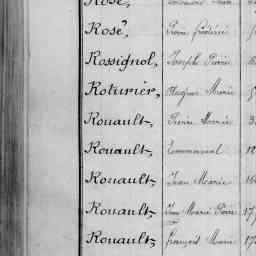 Rosé,
Rosé, Pierre Frédéric
Rossignol, Joseph Pierre
Roturier, Auguste Marie
Rouault, Pierre Marie 3
Rouault, Emmanuel 12
Rouault, Jean Marie 16
Rouault, Jean Marie Pierre 17
Rouault, François Marie 17